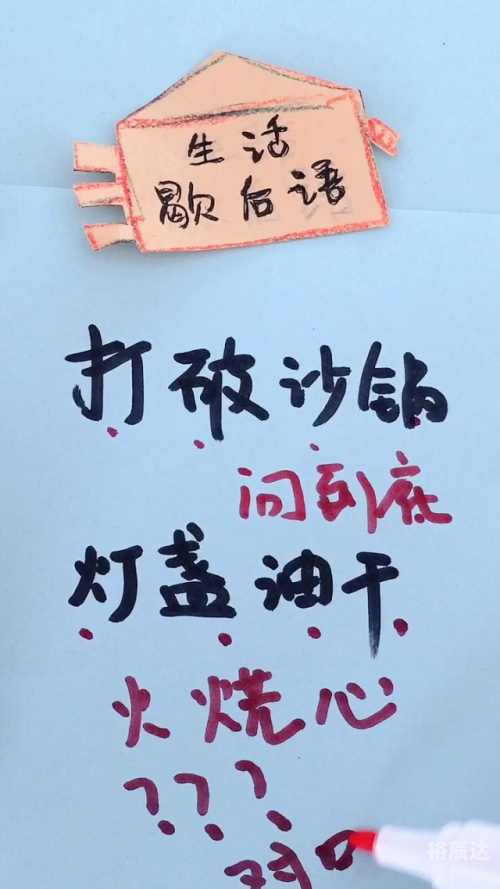 生活
歇后语
打破沙锅
问到底
灯盏油干
火烧心
???
对口
裕辰达